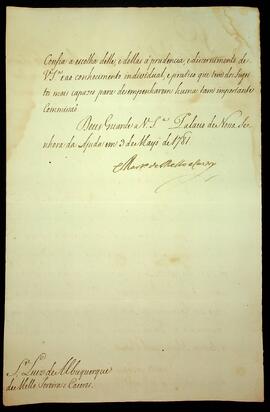 Confia a escolha delle, e dellas á prudencia, e discernimento de
V. S.ª e ao conhecimento individual, e pratico que tem dos sugei-
tos mais capazes para desempenharem huma tam importante
Commissaõ
Deus Guarde a V. S.ª Palacio de Nossa Se-
nhora da Ajuda em 3 de Mayo de 1781
Mart.º de Mello e Castro
S.r Luiz de Albuquerque
de Mello Pereira e Caceres.